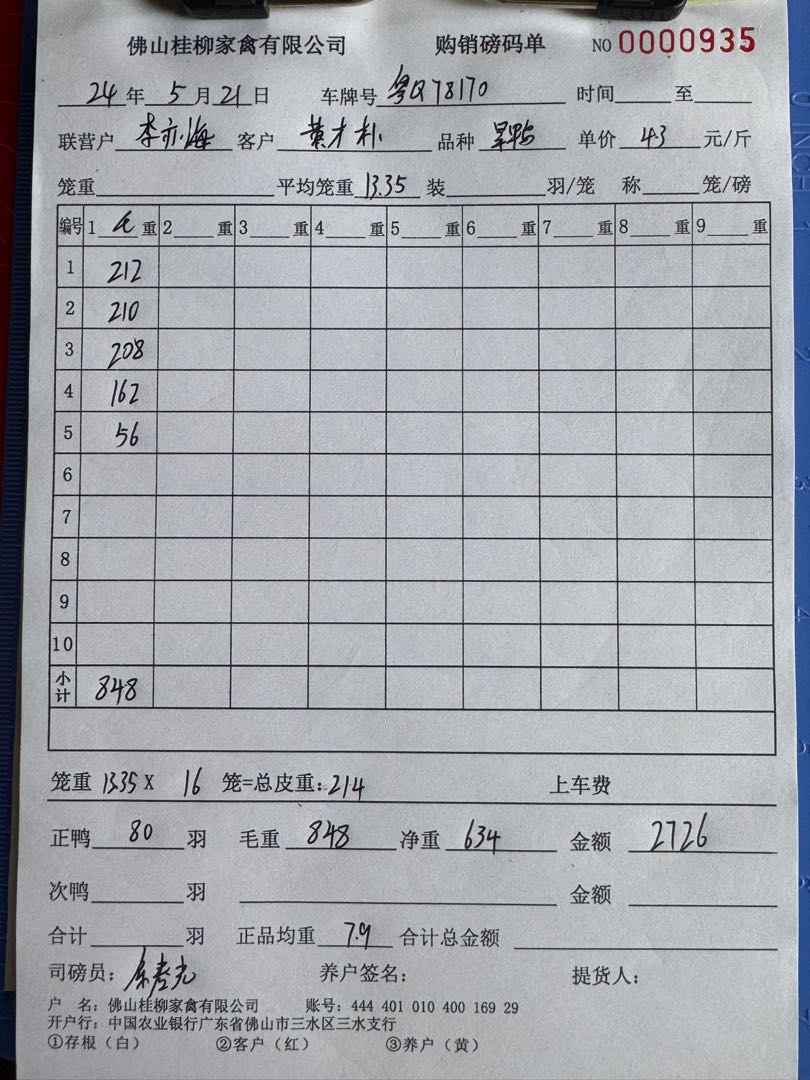 佛山桂柳家禽有限公司 购销磅码单 NO 0000935
24年5月21日 车牌号 粤Q78170 时间 至
联营户 李亦海 客户 黄才朴 品种 旱鸭 单价 43 元/斤
笼重 平均笼重 13.35 装 羽/笼 称 笼/磅
编号 1 毛 重 2 重 3 重 4 重 5 重 6 重 7 重 8 重 9 重
1 212
2 210
3 208
4 162
5 56
6
7
8
9
10
小计 848
笼重 13.35 X 16 笼=总皮重:214 上车费
正鸭 80 羽 毛重 848 净重 634 金额 2726
次鸭 羽 金额
合计 羽 正品均重 7.9 合计总金额
司磅员: 养户签名: 提货人:
户 名: 佛山桂柳家禽有限公司 账号: 444 401 010 400 169 29
开户行: 中国农业银行广东省佛山市三水区三水支行
①存根(白) ②客户(红) ③养户(黄)